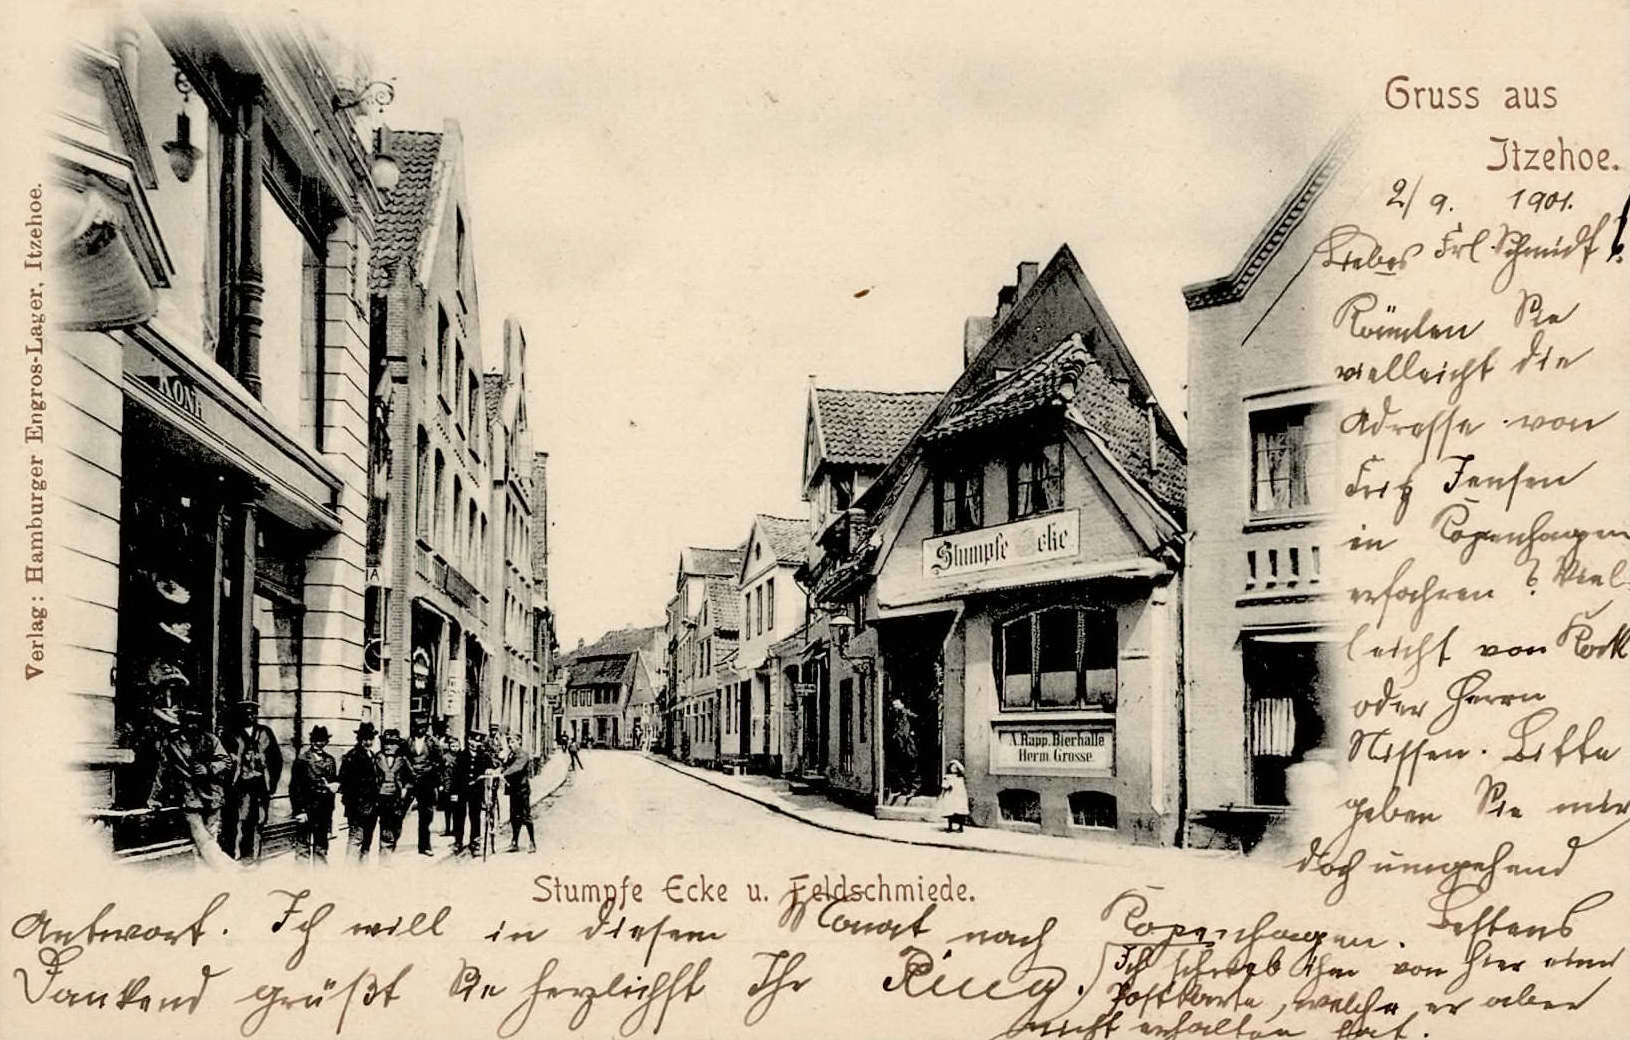 Gruss aus
Itzehoe.
2/9. 1901.
Liebes Frl. Schmidt!
Könnten Sie
vielleicht die
Adresse von
Fritz Jensen
in Kopenhagen
erfahren? Viel-
leicht von
oder Herrn
Nissen. Bitte
geben Sie mir
doch umgehend
Antwort. Ich will in diesem Monat nach Kopenhagen. Bestens
Dankend grüßt Sie herzlichst Ihr
Ich schrieb ihm von hier eine
Postkarte, welche er aber
nicht erhalten hat.
Stumpfe Ecke u. Feldschmiede.
Verlag: Hamburger Engros-Lager, Itzehoe.
Stumpfe Ecke
A. Rapp. Bierhalle
Herm. Grosse.